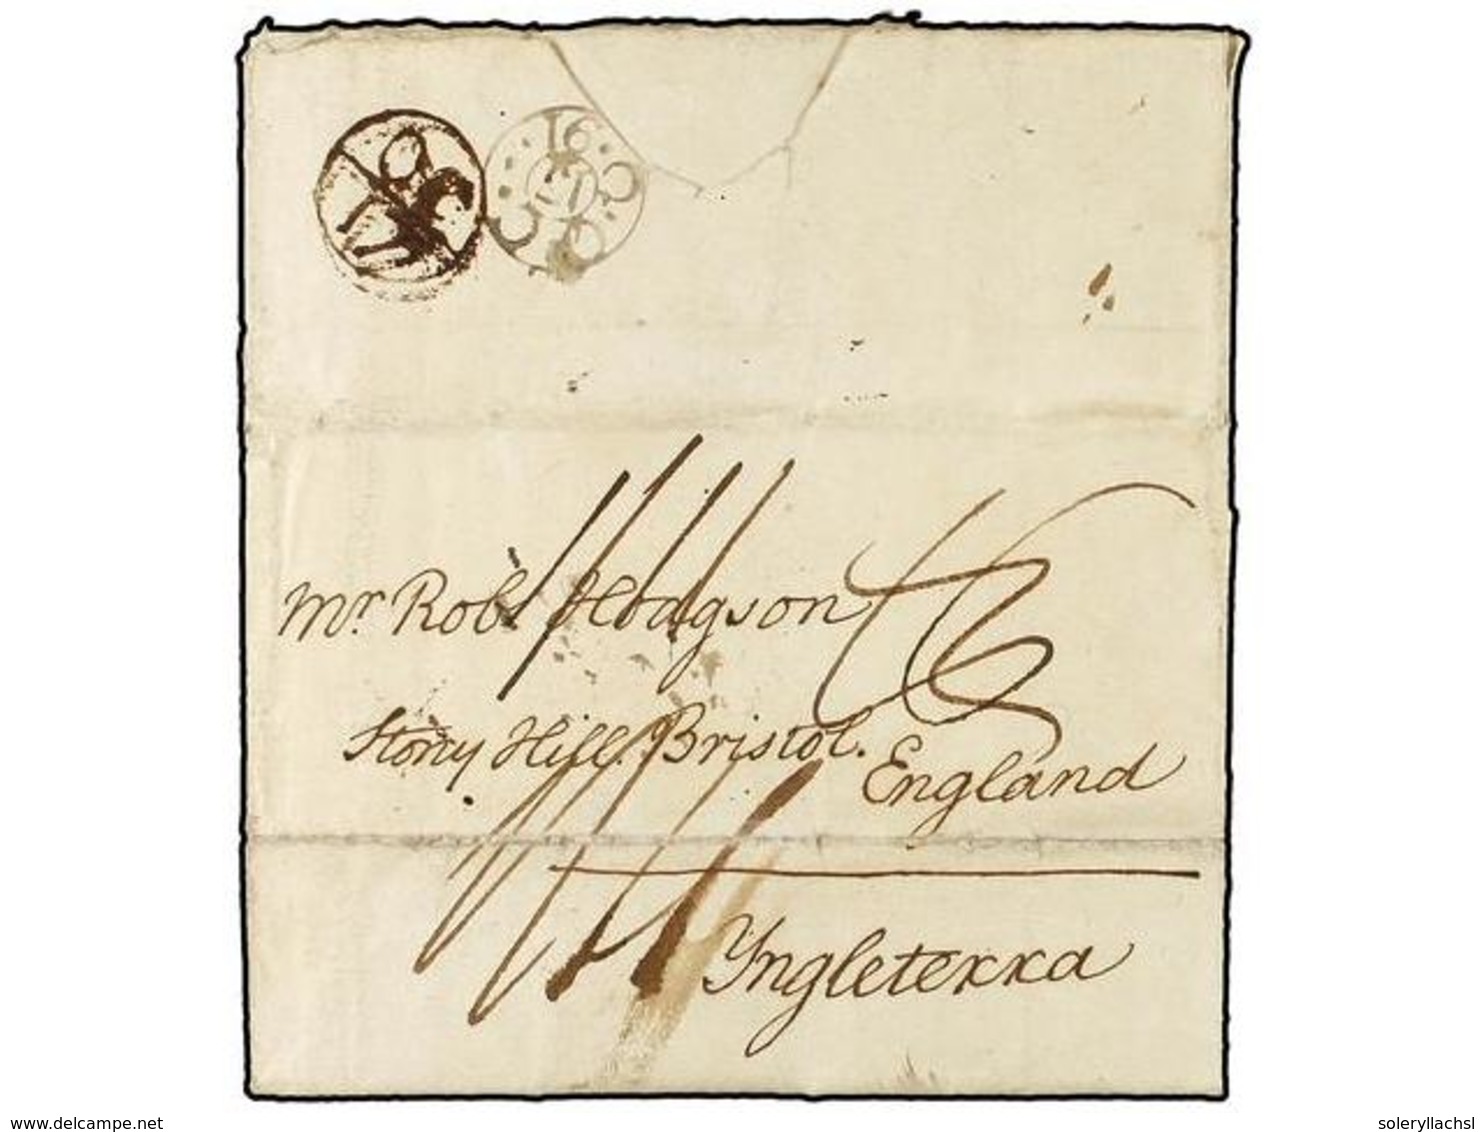 16
Mr. Robt Hodgson
Stony Hill. Bristol.
England
Yngleterra
www.delcampe.net
soleryllachsl